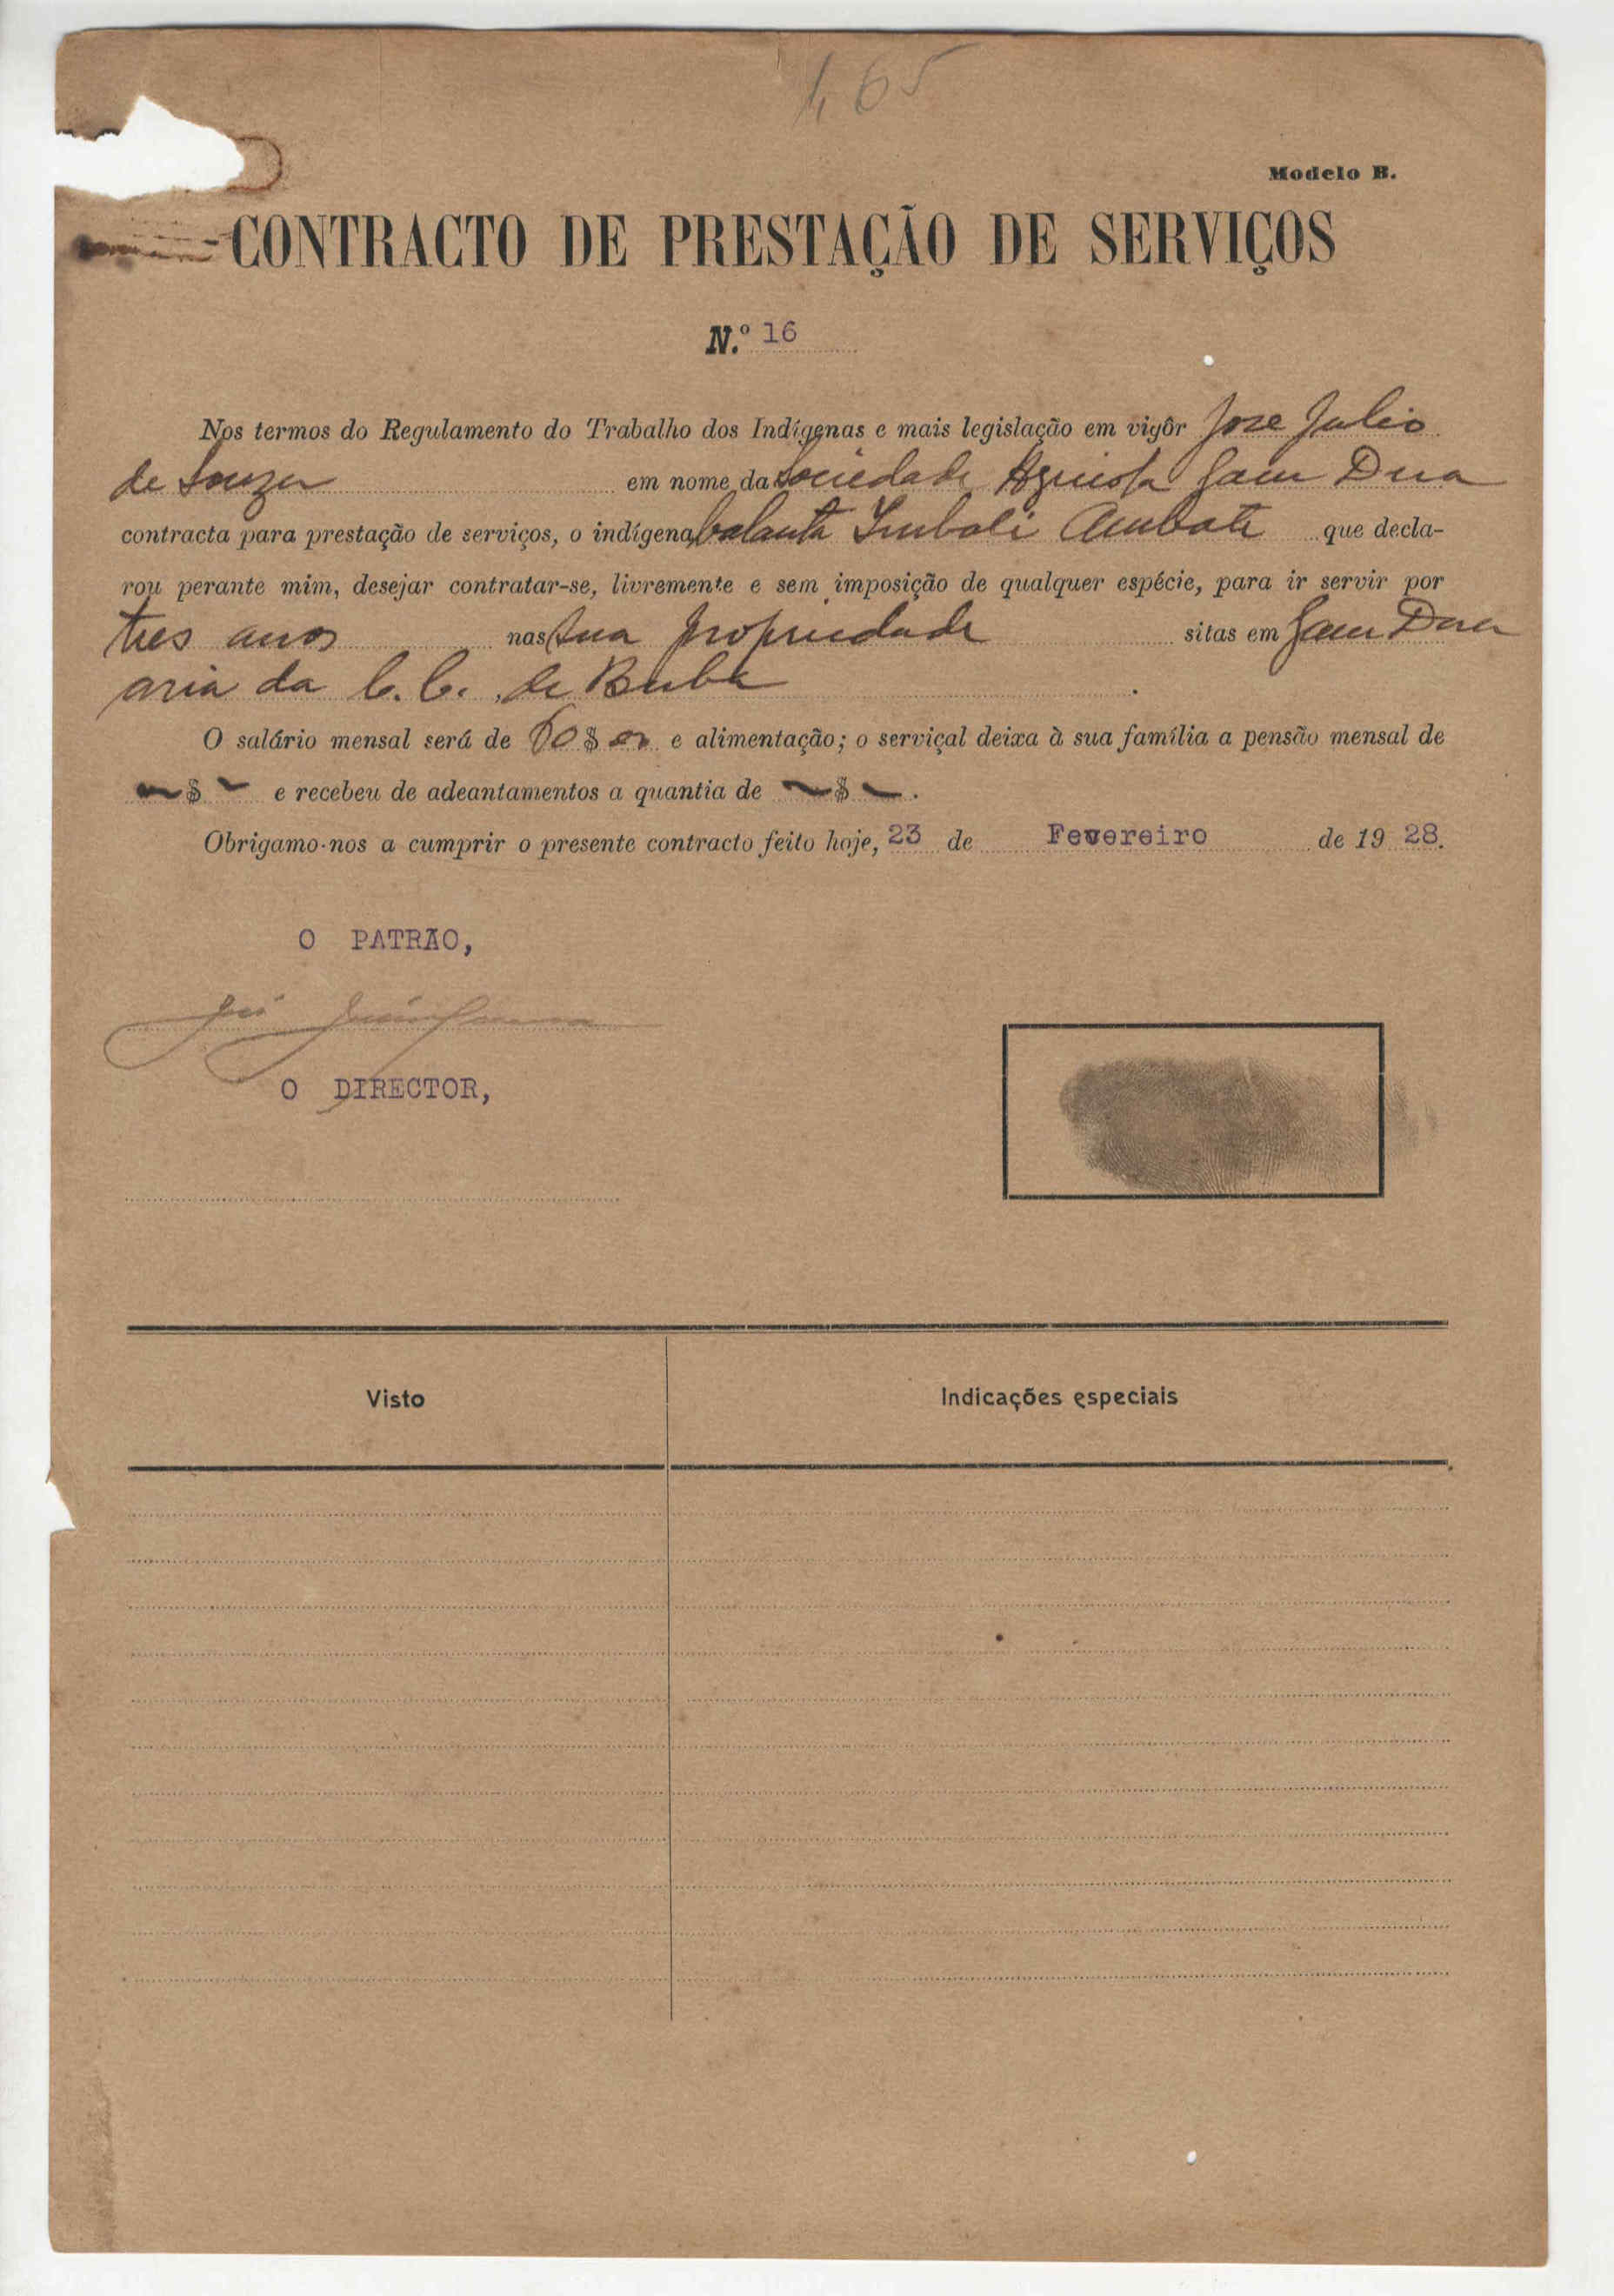 165
Modelo B.
CONTRACTO DE PRESTAÇÃO DE SERVIÇOS
N.º 16
Nos termos do Regulamento do Trabalho dos Indígenas e mais legislação em vigôr Jose Julio
de Souza em nome da Sociedade Agricola Gam Dua
contracta para prestação de serviços, o indígena balanta Imbali Ambate que decla-
rou perante mim, desejar contratar-se, livremente e sem imposição de qualquer espécie, para ir servir por
tres anos nas sua propriedade sitas em Gam Dua
aria da C. C. de Buba.
O salário mensal será de 60$00 e alimentação; o serviçal deixa à sua família a pensão mensal de
~$~ e recebeu de adeantamentos a quantia de ~$~.
Obrigamo-nos a cumprir o presente contracto feito hoje, 23 de Fevereiro de 1928.
O PATRÃO,
O DIRECTOR,
Visto Indicações especiais